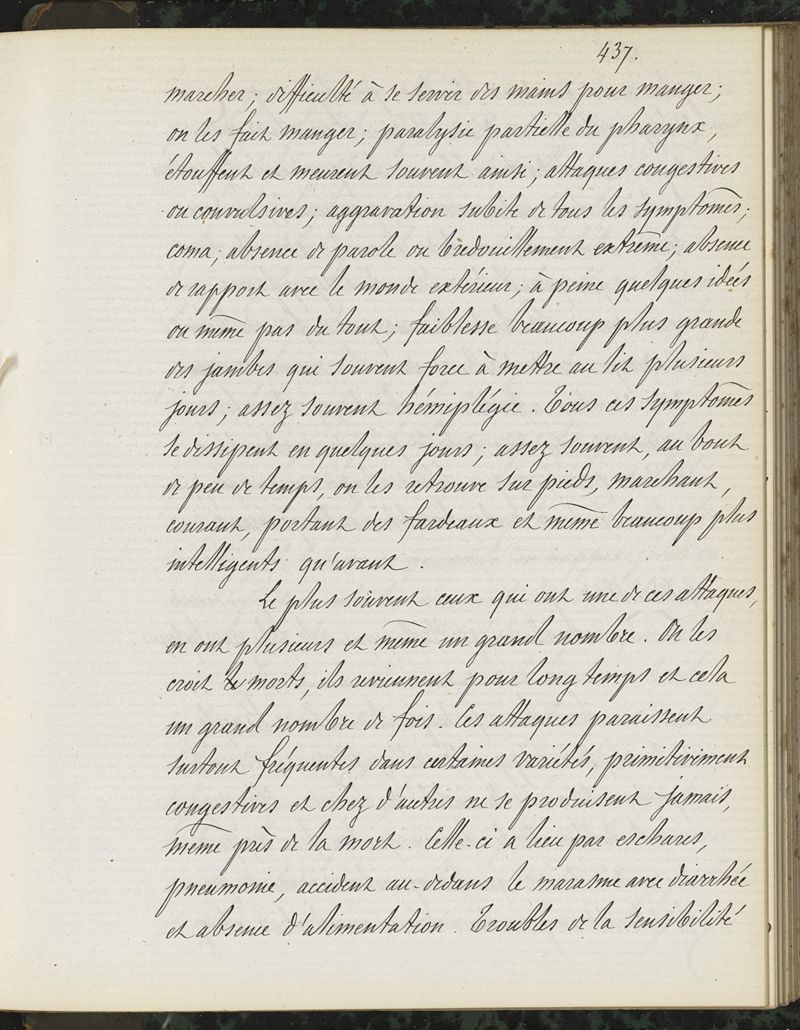 437.
marcher; difficulté à se servir des mains pour manger;
on les fait manger; paralysie partielle du pharynx,
étouffent et meurent souvent ainsi; attaques congestives
ou convulsives; aggravation subite de tous les symptômes;
coma; absence de parole ou bredouillement extrême; absence
de rapport avec le monde extérieur; à peine quelques idées
ou même pas du tout; faiblesse beaucoup plus grande
des jambes qui souvent force à mettre au lit plusieurs
jours; assez souvent hémiplégie. Tous ces symptômes
se dissipent en quelques jours; assez souvent, au bout
de peu de temps, on les retrouve sur pieds, marchant,
courant, portant des fardeaux et même beaucoup plus
intelligents qu'avant.
Le plus souvent ceux qui ont une de ces attaques,
en ont plusieurs et même un grand nombre. On les
croit morts, ils reviennent pour longtemps et cela
un grand nombre de fois. Ces attaques paraissent
surtout fréquentes dans certaines variétés, primitivement
congestives et chez d'autres ne se produisent jamais,
même près de la mort. Celle-ci a lieu par eschares,
pneumonie, accident au-dedans le marasme avec diarrhée
et absence d'alimentation. Troubles de la sensibilité